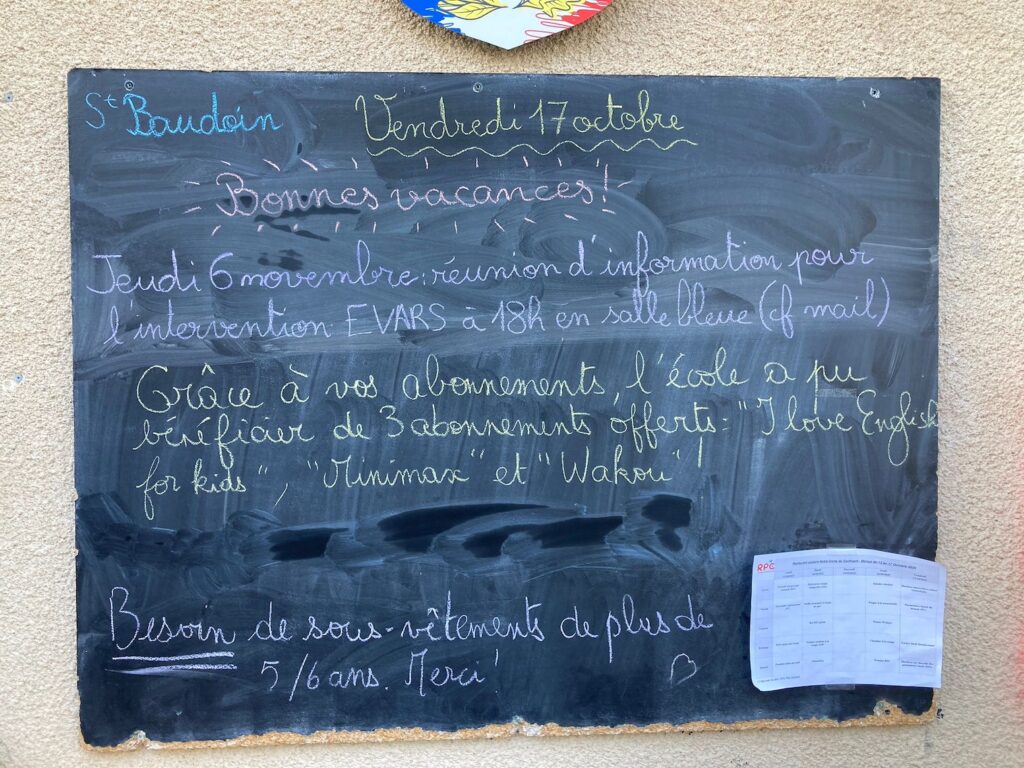 St Baudoin
Vendredi 17 octobre
Bonnes vacances!
Jeudi 6 novembre: réunion d'information pour
l'intervention EVARS à 18h en salle bleue (cf mail)
Grâce à vos abonnements, l'école a pu
bénéficier de 3 abonnements offerts: "I love English
for kids", "Minimax" et "Wakou"!
Besoin de sous-vêtements de plus de
5/6 ans. Merci!
RPC